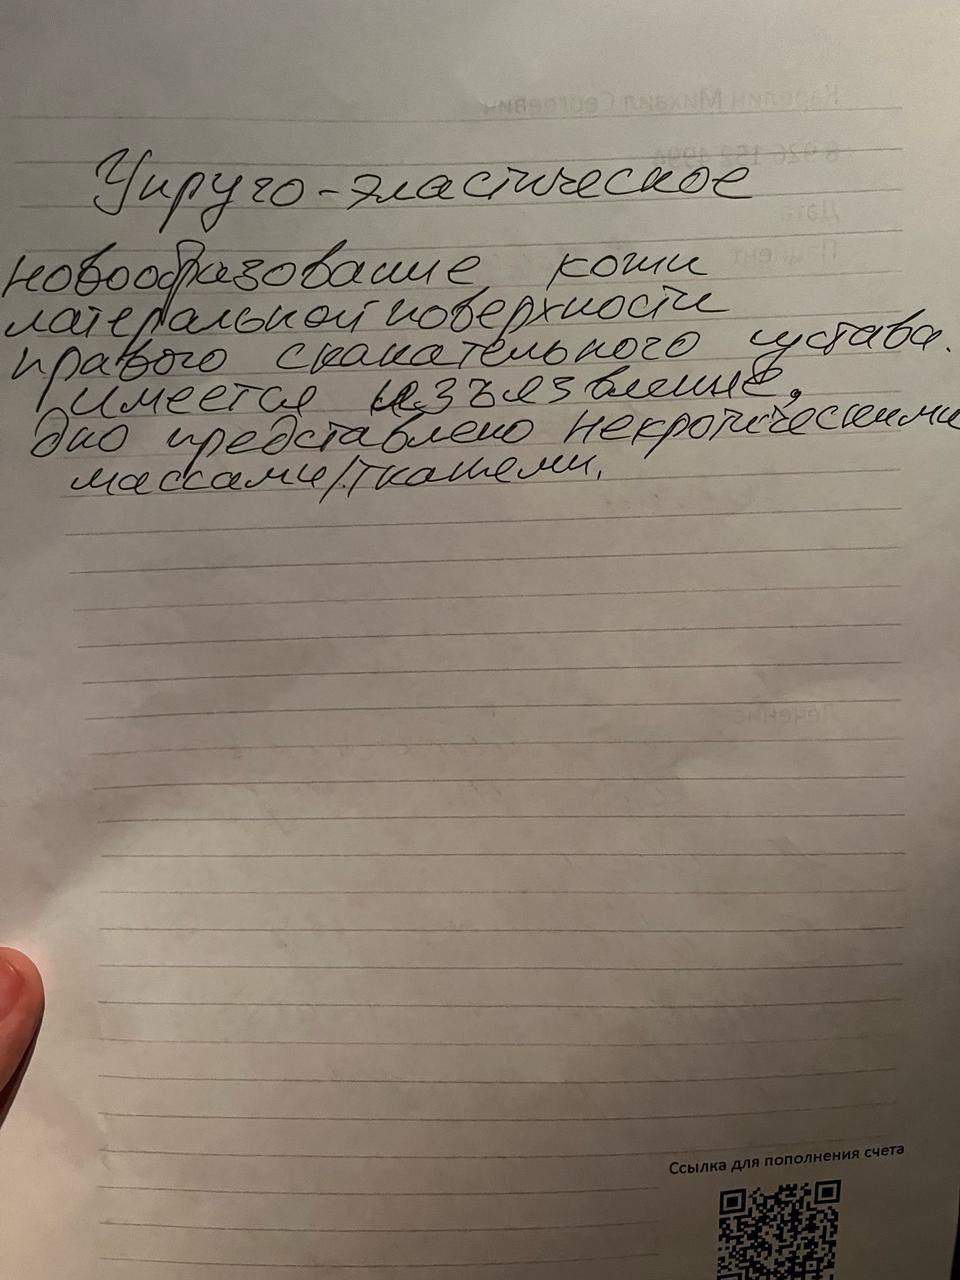 Упруго-эластическое
новообразование кожи
латеральной поверхности
правого скакательного сустава.
имеется изъязвление,
дно представлено некротическими
массами/тканями.
Ссылка для пополнения счета